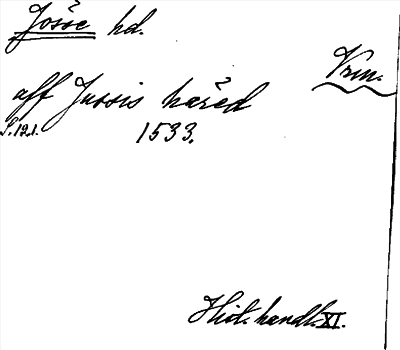 Jösse hd.
Vrm.
aff Jussis häred
S. 121. 1533.
Hist. handl. XI.